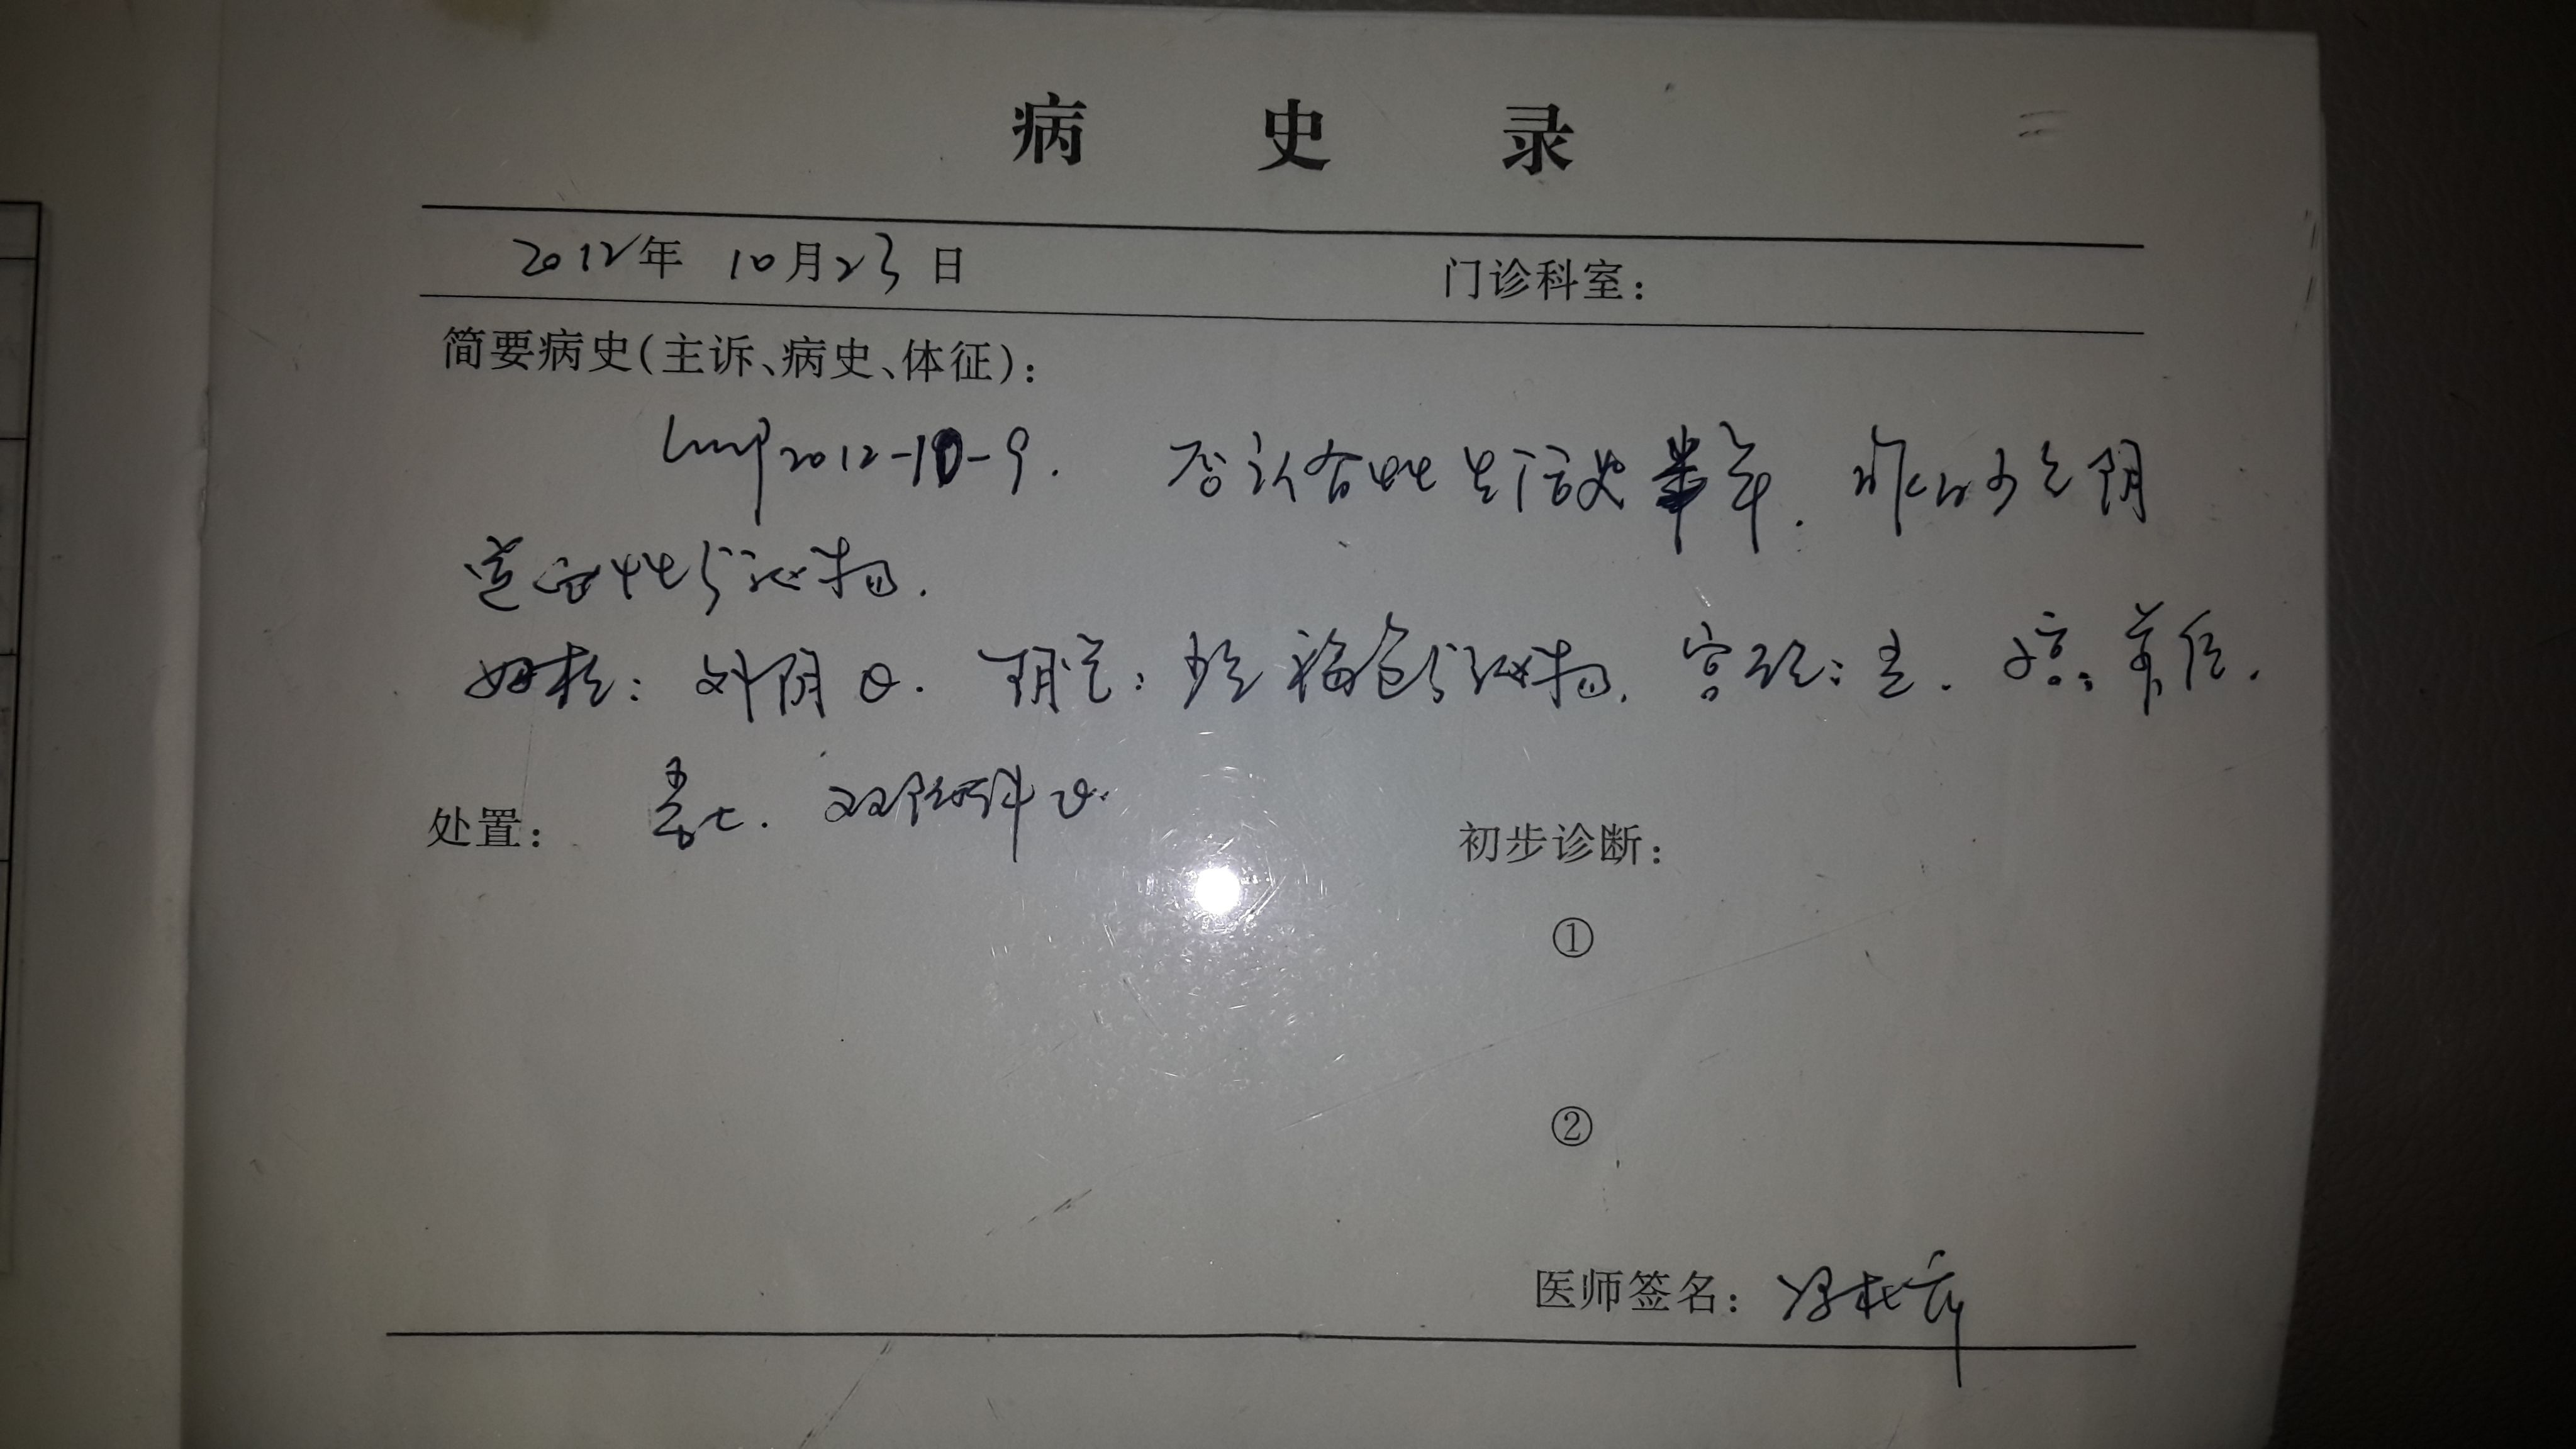 病史录
2012年 10月23日 门诊科室：
简要病史(主诉、病史、体征)：
Lmp 2012-10-9. 否认有性生活史半年. 昨日少量阴
道血性分泌物.
妇检: 外阴 阴道: 少量褐色分泌物. 宫颈: 光. 子宫: 前位.
处置： 常大. 双附件 初步诊断：
①
②
医师签名：